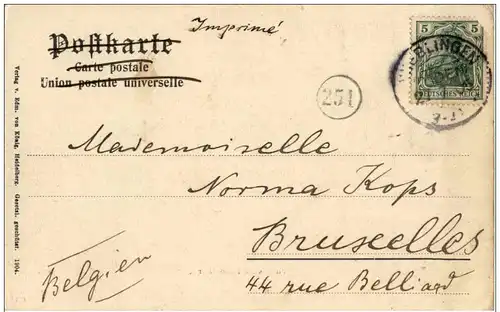 Imprimé
Postkarte
Carte postale
Union postale universelle
5 5
DEUTSCHES REICH
251
Mademoiselle
Norma Kops
Bruxelles
44 rue Belliard
Belgien
Verlag v. Edm. von König, Heidelberg. Gesetzl. geschützt. 1904.